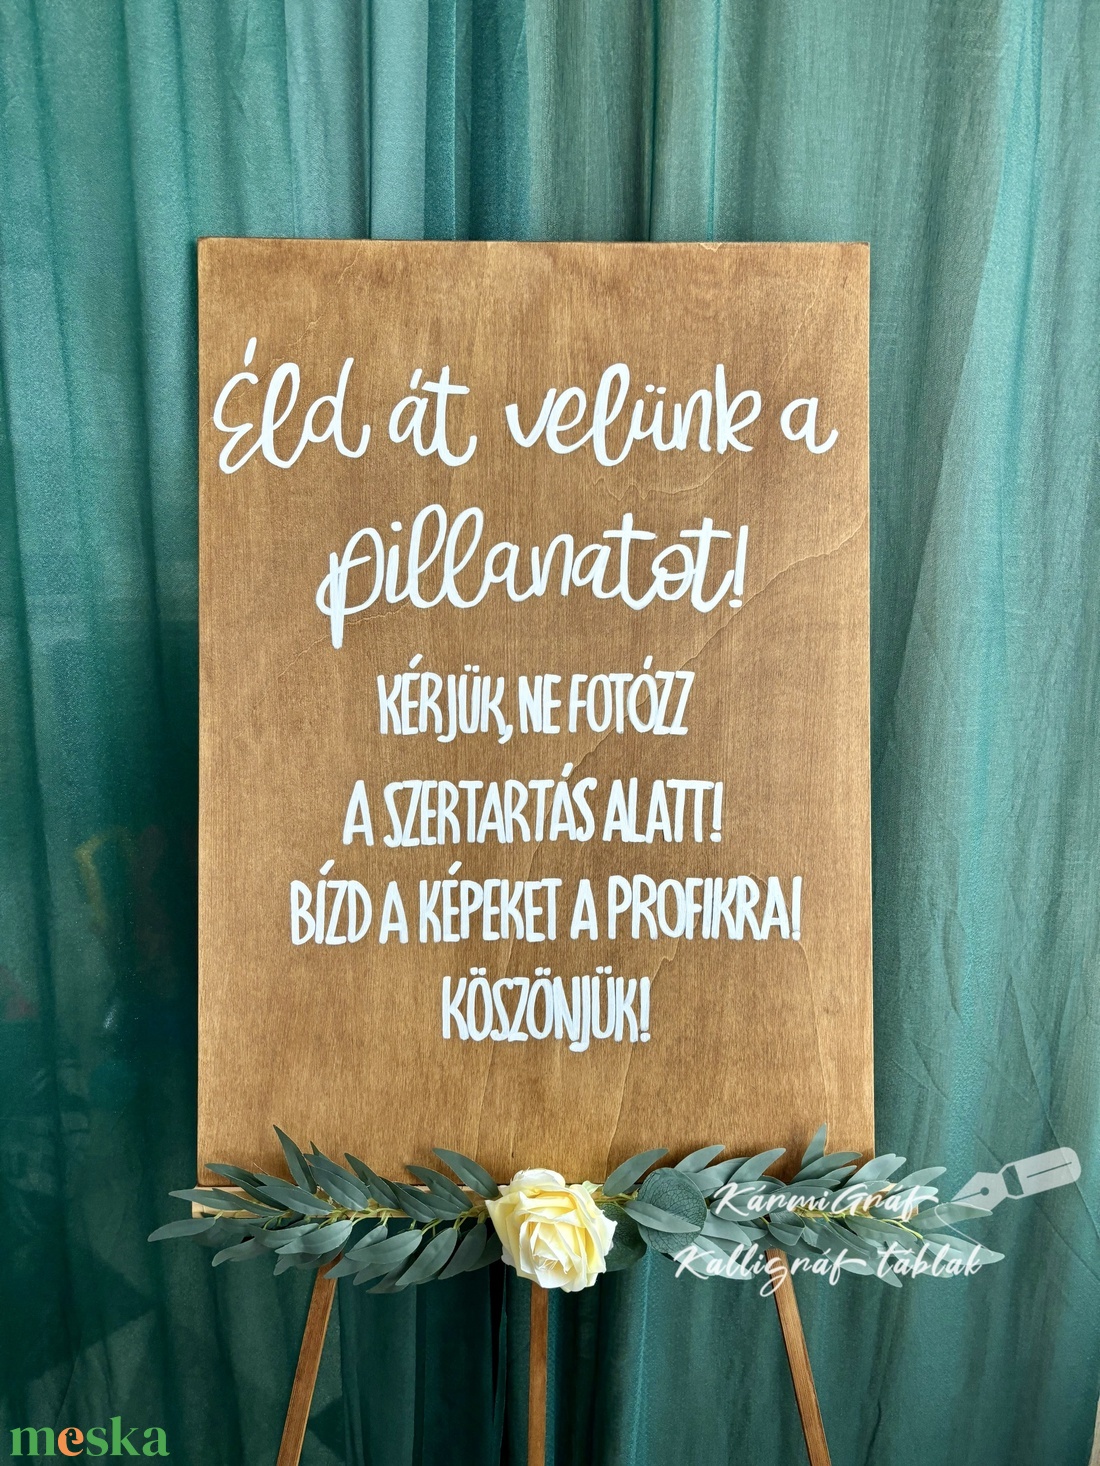 Éld át velünk a
pillanatot!
KÉRJÜK, NE FOTÓZZ
A SZERTARTÁS ALATT!
BÍZD A KÉPEKET A PROFIKRA!
KÖSZÖNJÜK!
KármiGráf
Kalligráf táblák
meska